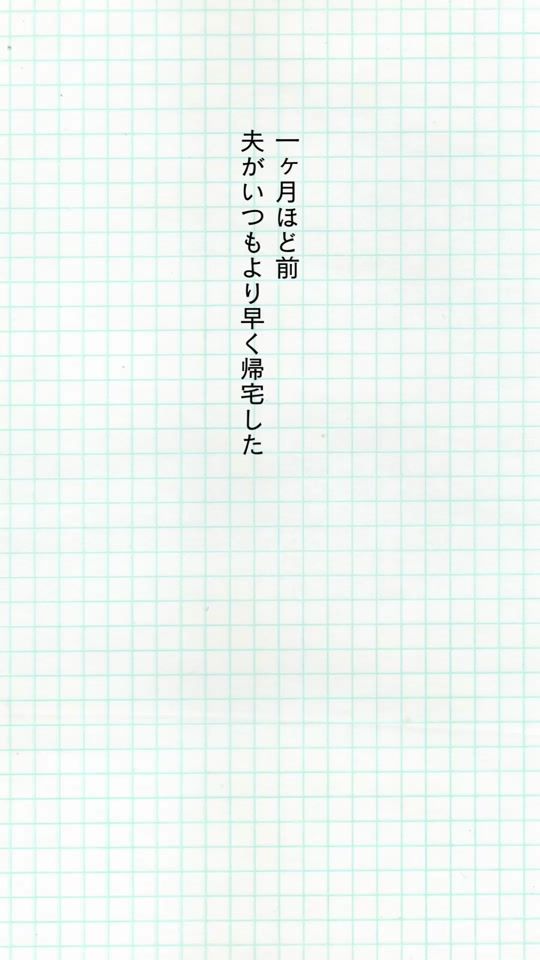 一ヶ月ほど前
夫がいつもより早く帰宅した